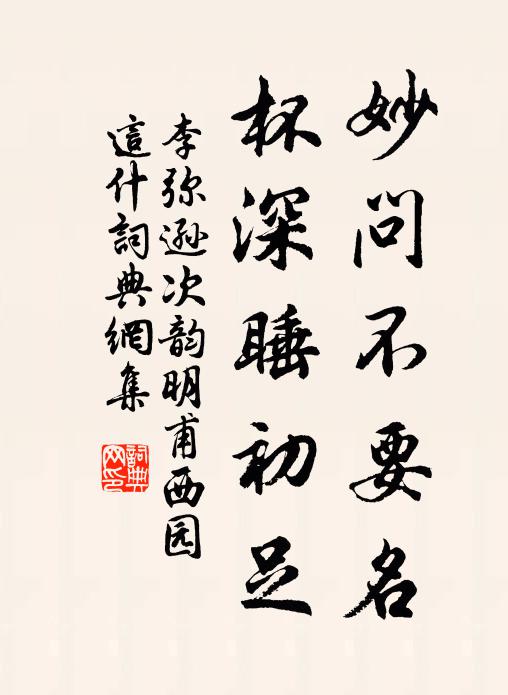 妙问不要名
杯深睡初足
李弥逊次韵明甫西园
這什詞典網集
詞典
网印